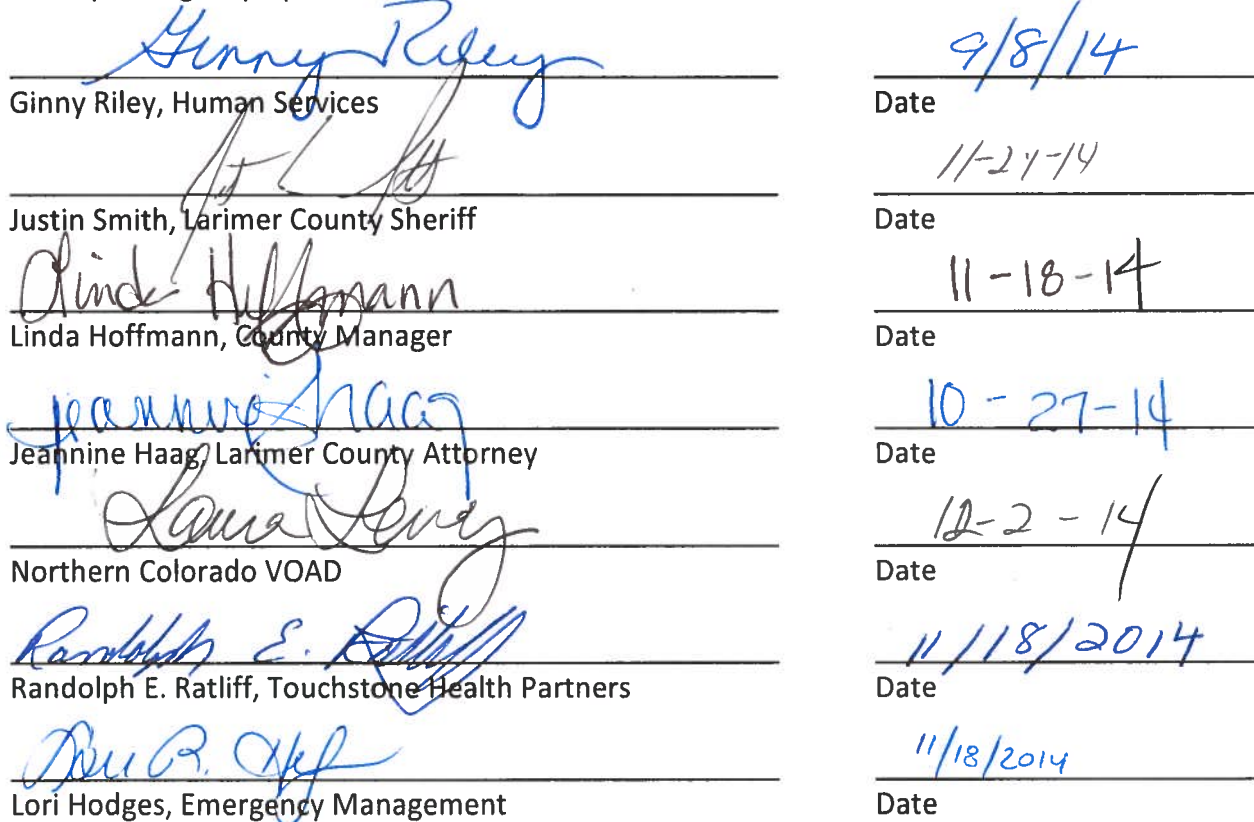 Ginny Riley 9/8/14
Ginny Riley, Human Services Date
Justin Smith, Larimer County Sheriff Date
Linda Hoffmann 11-18-14
Linda Hoffmann, County Manager Date
Jeannine Haag 10-27-14
Jeannine Haag, Larimer County Attorney Date
Laura 12-2-14
Northern Colorado VOAD Date
Randolph E. Ratliff 11/18/2014
Randolph E. Ratliff, Touchstone Health Partners Date
Lori R. Hodges 11/18/2014
Lori Hodges, Emergency Management Date